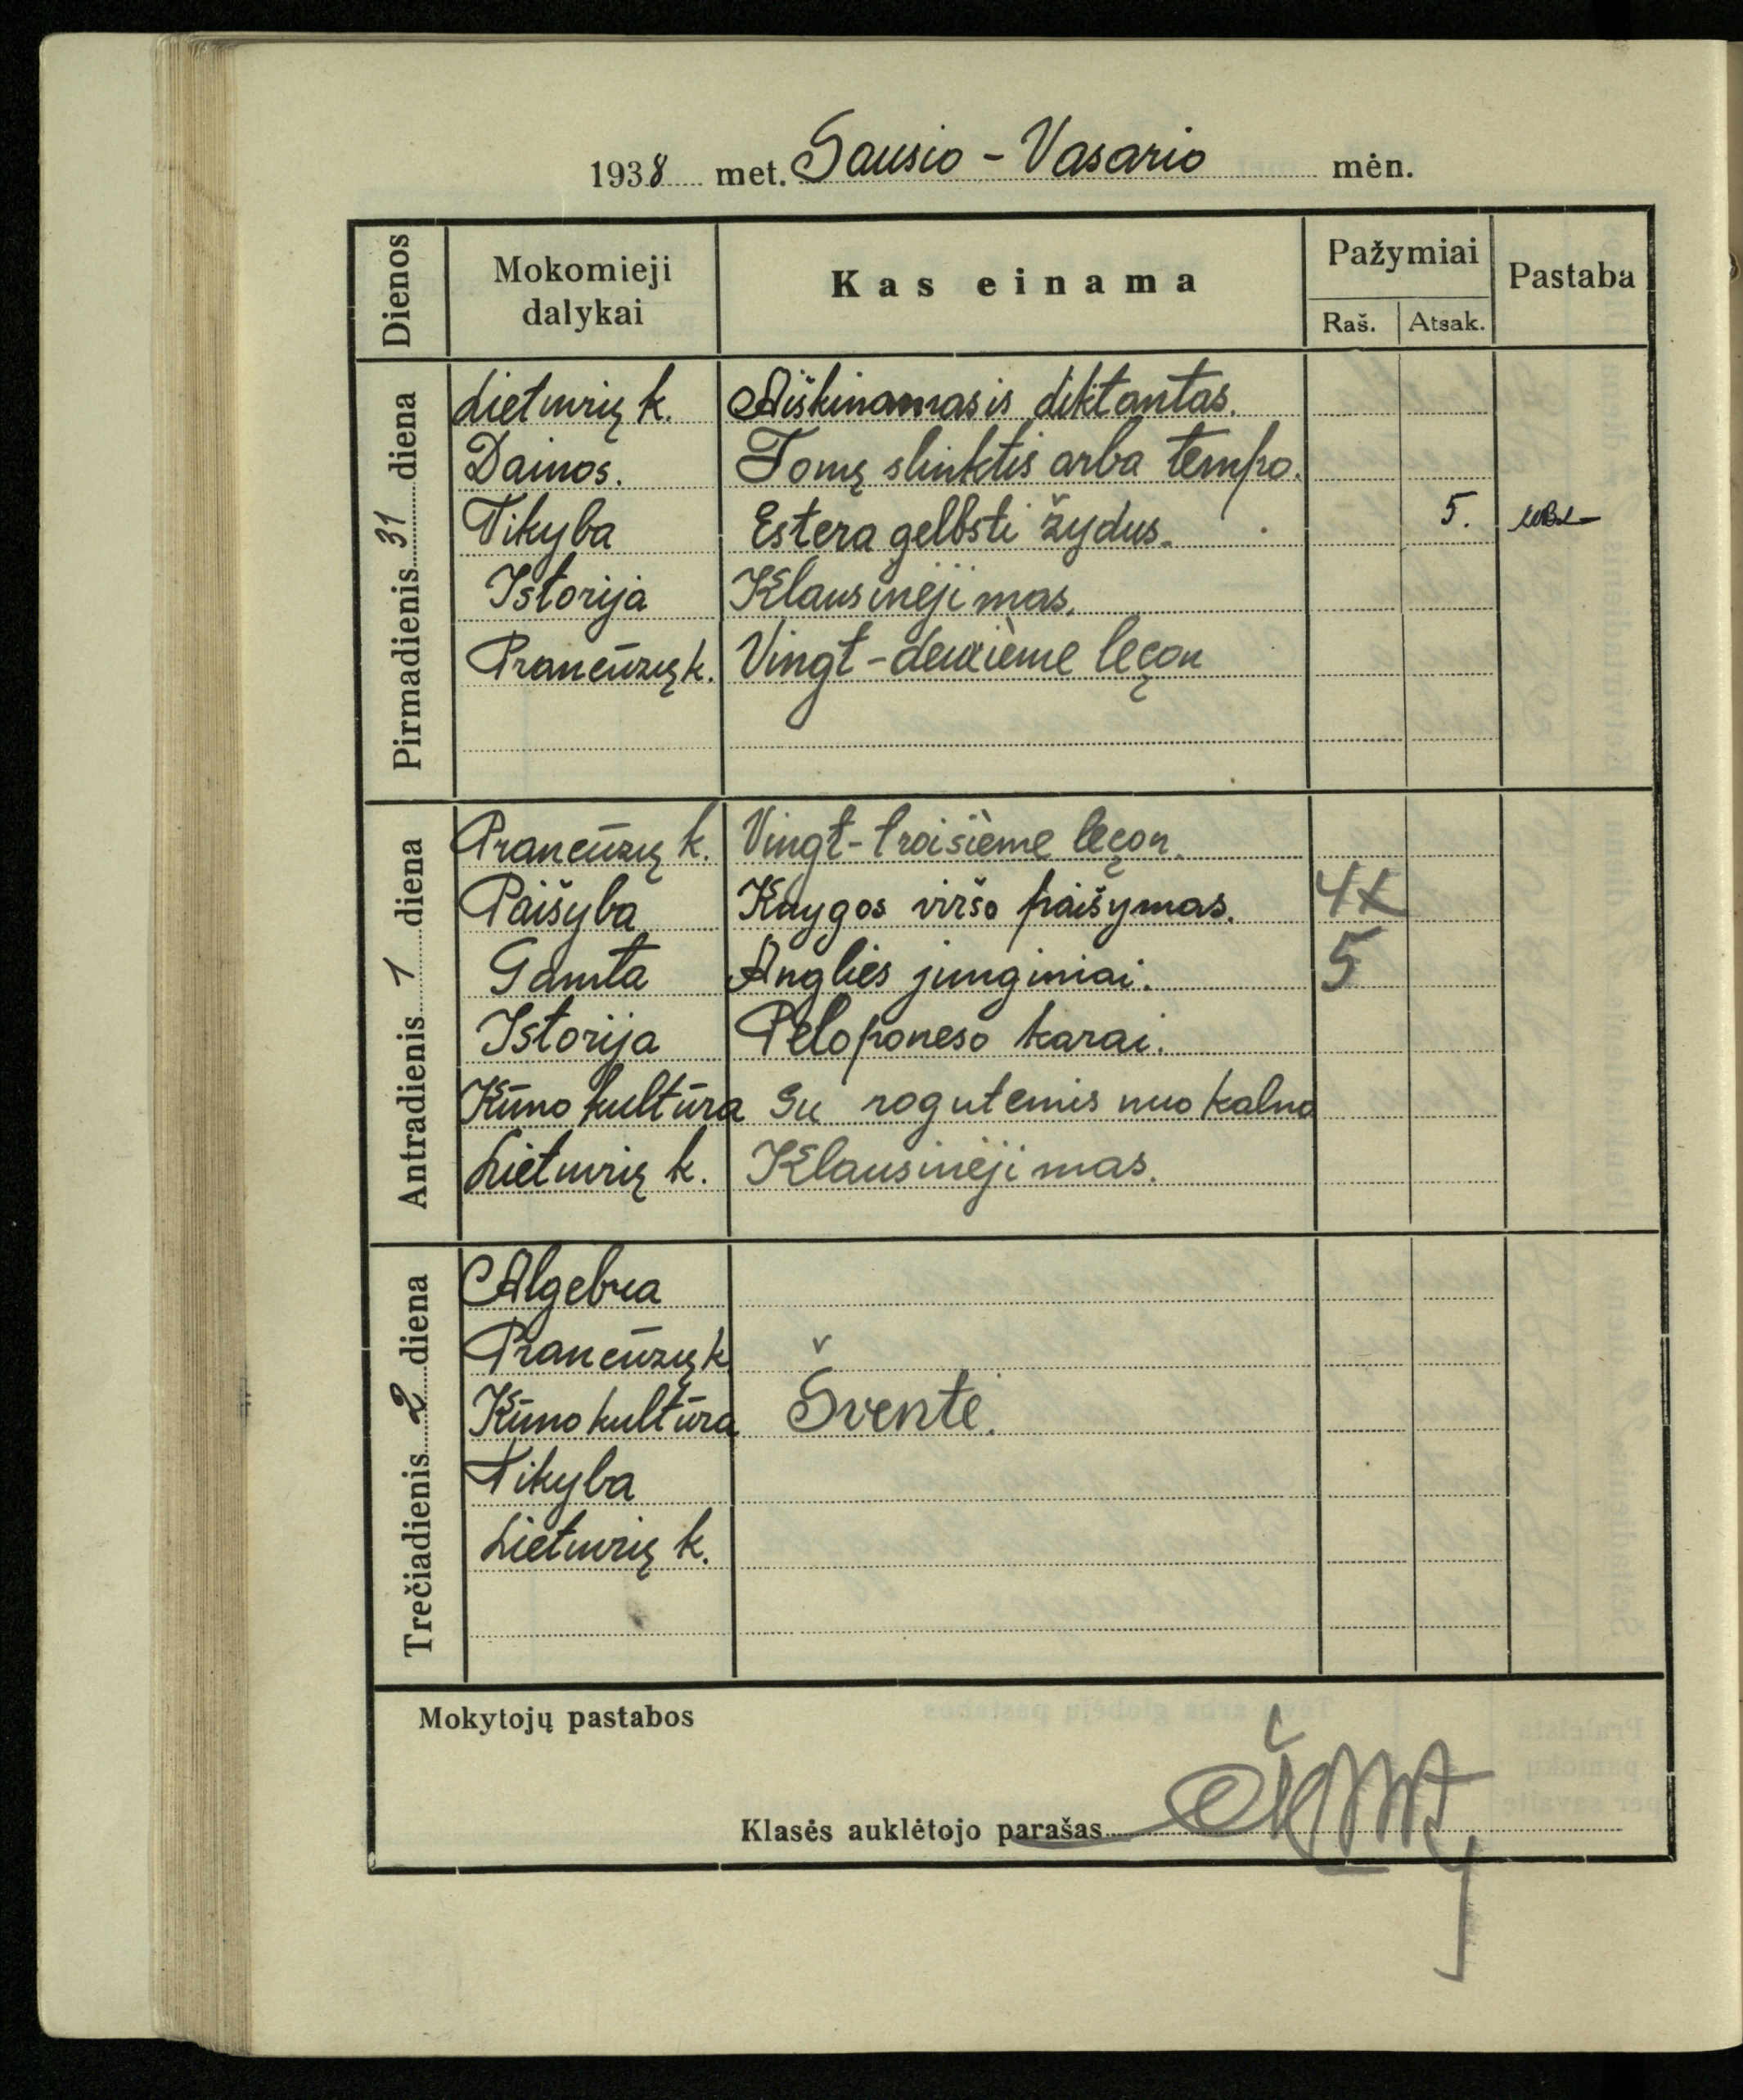 1938 met. Sausio - Vasario mėn.
Dienos
Mokomieji dalykai
Kas einama
Pažymiai
Raš. Atsak.
Pastaba
Pirmadienis 31 diena
Lietuvių k. Aiškinamasis diktantas.
Dainos. Tonų slinktis arba tempo.
Tikyba Estera gelbsti žydus. 5.
Istorija Klausinėjimas.
Prancūzų k. Vingt-deuxième leçon
Antradienis 1 diena
Prancūzų k. Vingt-troisième leçon.
Paišyba Knygos viršo paišymas. 4
Gamta Anglies junginiai. 5
Istorija Peloponeso karai.
Kūno kultūra Su rogutėmis nuo kalno
Lietuvių k. Klausinėjimas.
Trečiadienis 2 diena
Algebra
Prancūzų k
Kūno kultūra Šventė.
Tikyba
Lietuvių k.
Mokytojų pastabos
Klasės auklėtojo parašas